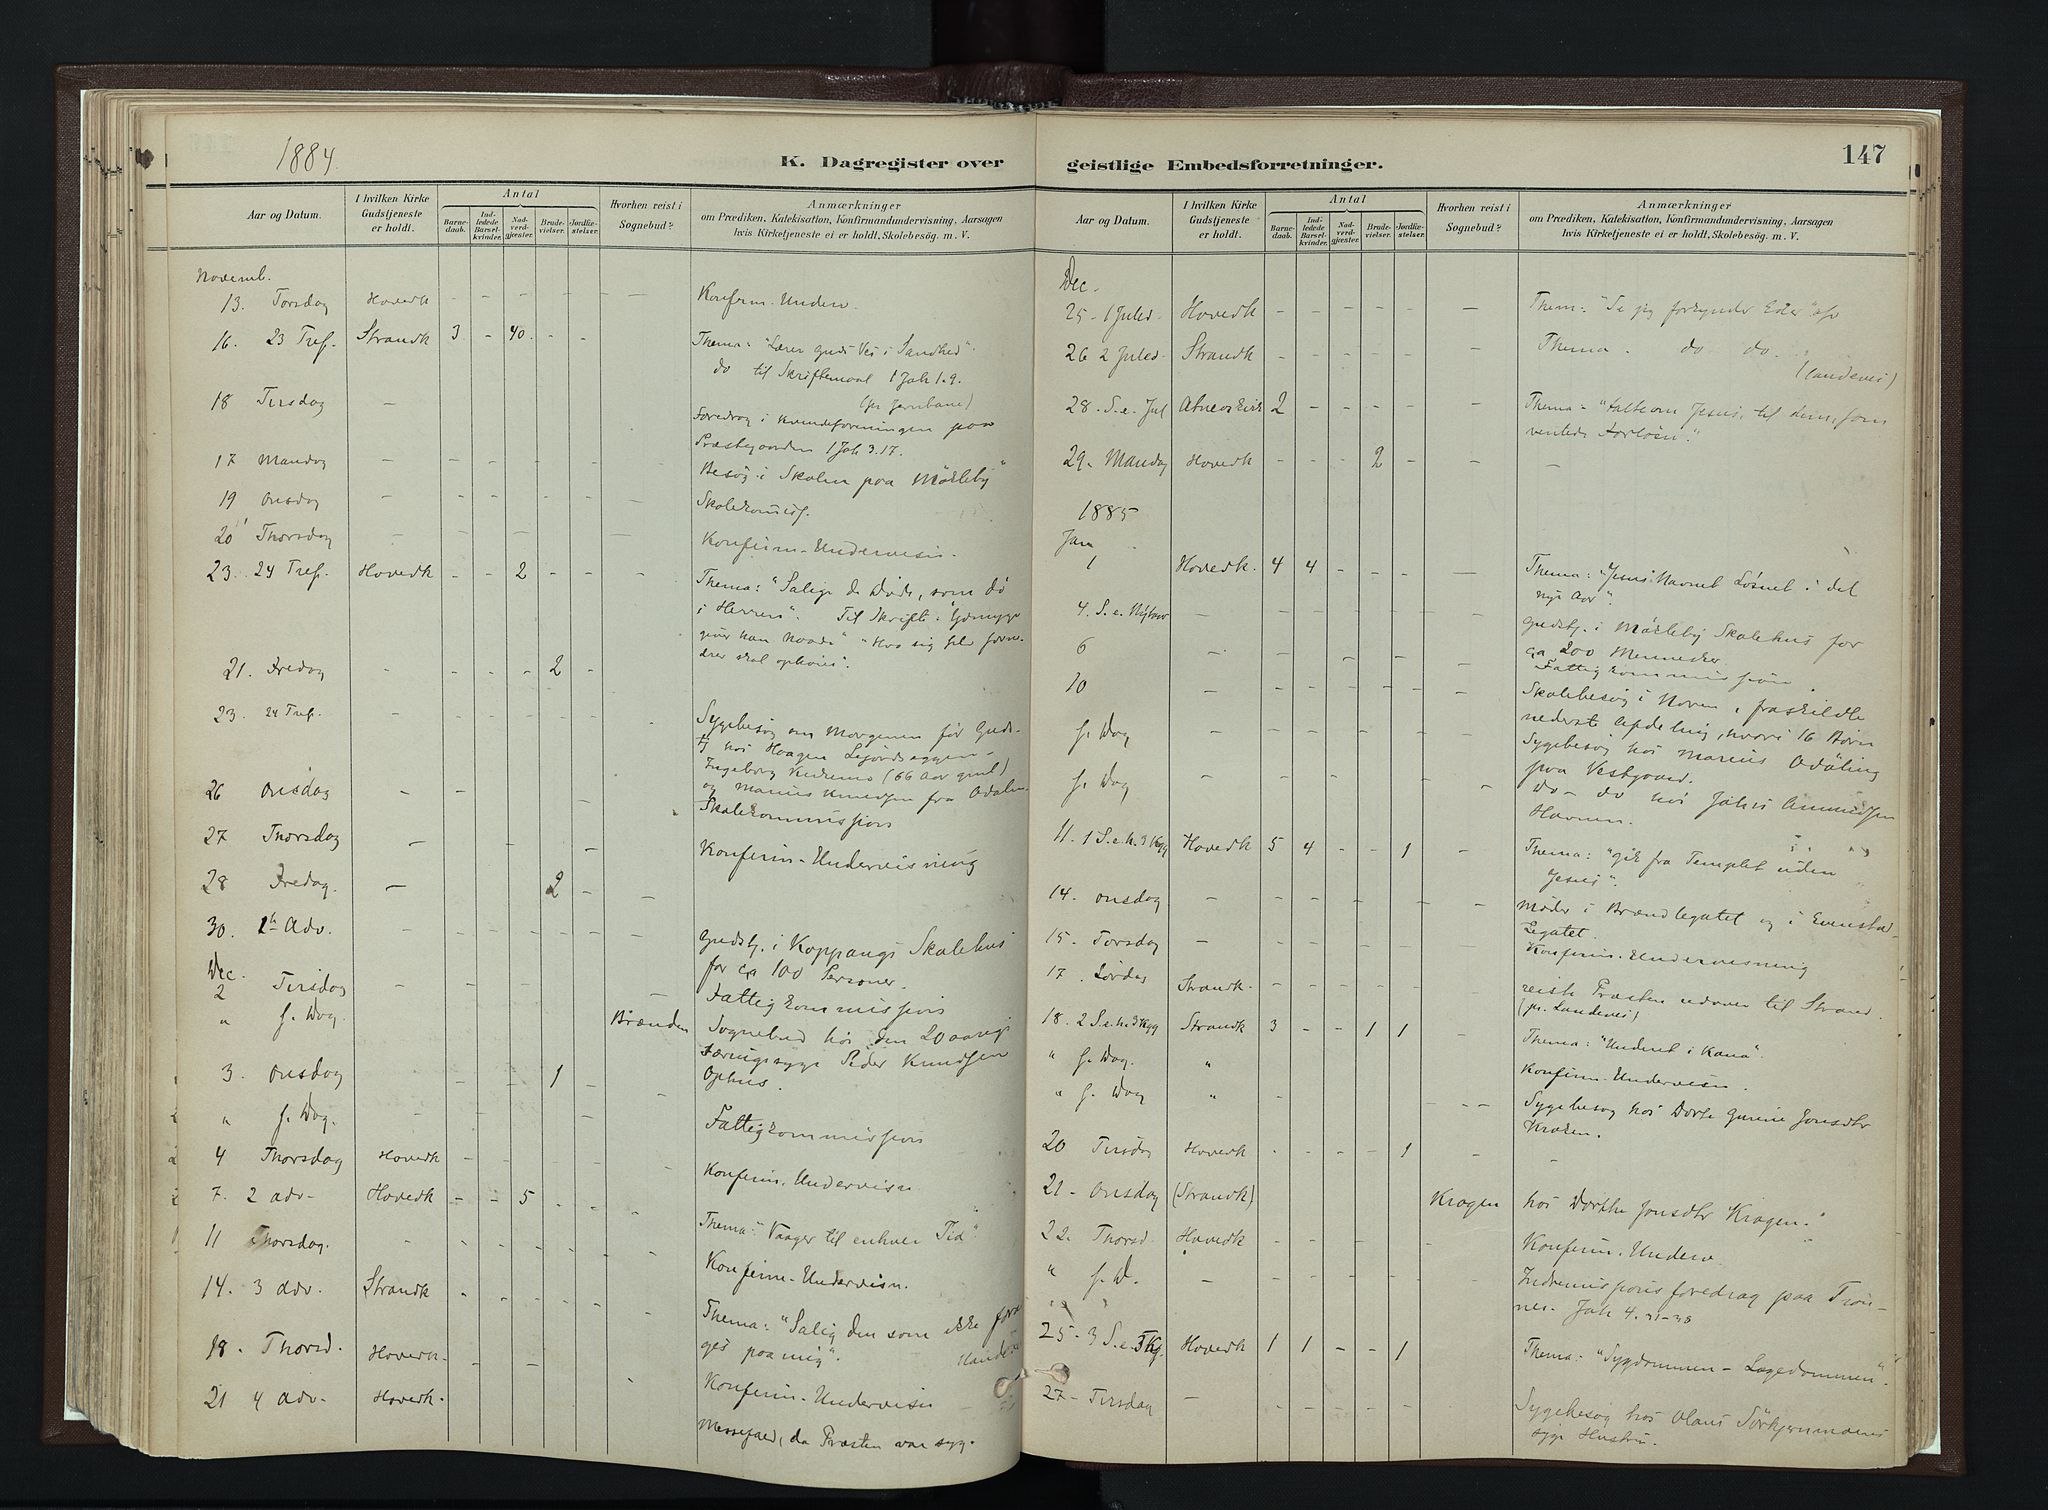 1884.
K. Dagregister over
Aar og Datum.
I hvilken Kirke Gudstjeneste er holdt.
Antal
Barne-daab.
Ind-ledede Barsel-kvinder.
Nad-verd-gjæster.
Brude-vielser.
Jordfæ-stelser.
Hvorhen reist i Sognebud?
Anmærkninger
om Prædiken, Katekisation, Konfirmandundervisning, Aarsagen
hvis Kirketjeneste ei er holdt, Skolebesøg. m. V.
Novemb.
13. Torsdag Hovedk - - - - - - Konfirm. Underv.
16. 23 Tref. Strandk 3 - 40 - - Thema: "Lærer Guds Vei i Sandhed".
do til Skriftemaal 1 Joh 1.9.
(pr Jernbane)
18 Tirsdag - Foredrag i Kvindeforeningen paa
Præstegaarden 1 Joh 3.17.
17 Mandag - Besøg i Skolen paa Møkleby
19 Onsdag - Skolekomisf.
20 Thorsdag - Konfirm-Undervisn.
23. 24 Tref. Hovedk - - 2 - - - Thema: "Salige de Døde, som dø
i Herren". Til Skrifte: Ydmyge
giver han Naade" "Hvo sig selv forne-
drer skal ophøies".
21. Fredag - - - - 2 -
23. 24 Tref. - Sygebesøg om Morgenen før Guds-
tj hos Haagen
Ingeborg (66 Aar gml)
og Marius Knudsen fra Odalen
26 Onsdag - - Skolekommission
27 Thorsdag - - Konfirm-Undervisning
28 Fredag. - 2 - -
30. 1ste Adv. - Gudstj. i Koppangs Skolehus
for ca 100 Personer.
Dec.
2 Tirsdag - Fattigkommission
" s. Dag. Brænden Sognebud hos den 20aarige
Tæringssyge Peder Knudsen
Ophus.
3. Onsdag - - 1 -
" s. Dag. - Fattigkommission
4 Thorsdag Hovedk - Konfirm. Undervisn
7. 2 Adv- Hovedk - - 5 - - - Thema: "Vaager til enhver Tid".
11 Thorsdag. - Konfirm-Undervisn.
14. 3 Adv. Strandk - Thema: "Salig den som ikke forar-
ges paa mig".
18. Thorsd. Hovedk. - Konfirm-Undervisn
21 4 Adv- Hovedk. Messefald, da Præsten var syg.
geistlige Embedsforretninger.
147
Aar og Datum.
I hvilken Kirke Gudstjeneste er holdt.
Antal
Barne-daab.
Ind-ledede Barsel-kvinder.
Nad-verd-gjæster.
Brude-vielser.
Jordfæ-stelser.
Hvorhen reist i Sognebud?
Anmærkninger
om Prædiken, Katekisation, Konfirmandundervisning, Aarsagen
hvis Kirketjeneste ei er holdt, Skolebesög. m. V.
Dec.
25 - 1 Juled. Hovedk - - - - - - Thema: "Se jeg forkynder Eder" osv
26 2 Juled. Strandk - - - - - - Thema. do do.
(Landevei)
28. S. e. Jul Atneoskirk 2 - - - - - Thema: "talte om Jesus, til dem, som
vented Forløsn."
29. Mandag Hovedk - - - 2 - - -
1885
Jan
1 Hovedk. 4 4 - - - - Thema: "Jesu Navnet Løsnet i det
nye Aar".
4. S. e. Nytaar - Gudstj. i Møkleby Skolehus for
ca 200 Mennesker.
6 - Fattigkommission
10 - Skolebesøg i Koven, fraskildte
nederste Afdeling, hvori 16 Børn
s. Dag - Sygebesøg hos Marius Odøling
paa Vestgaard.
s. Dag - do - do hos Johis Amundsen
Havnen.
11. 1 S. e. h. 3 Kgg Hovedk 5 4 - - 1 - Thema: "gik fra Templet uden
Jesus".
14. Onsdag - Møder i Brændlegatet og i Evenstad-
Legatet.
15. Torsdag - Konfirm. Undervisning
17. Lördag Strandk. - reiste Præsten udover til Strand.
(pr. Landevei)
18. 2 S. e. h. 3 Kgg Strandk 3 - - 1 1 - Thema: "Underet i Kana".
" s. Dag. " Konfirm-Undervisn.
" s. Dag " Sygebesøg hos Dorte Gurine Jonsdtr
Kroken.
20 Tirsdag Hovedk - - - - 1 - -
21 - Onsdag (Strandk) Kragen hos Dorthe Jonsdtr Kragen."
22. Thorsd. Hovedk - Konfirm. Underv
" s. D. - Indremissions foredrag paa Trøn-
nes. Joh 4. 31-38
25 - 3 S. e. 3 Kg. Hovedk 1 1 - - 1 Thema: "Sygdommen - Lægedommen".
27 - Tirsdag - Sygebesøg hos Olaus
syge Hustru.